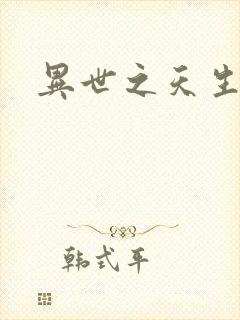 異世之天生
韩式平